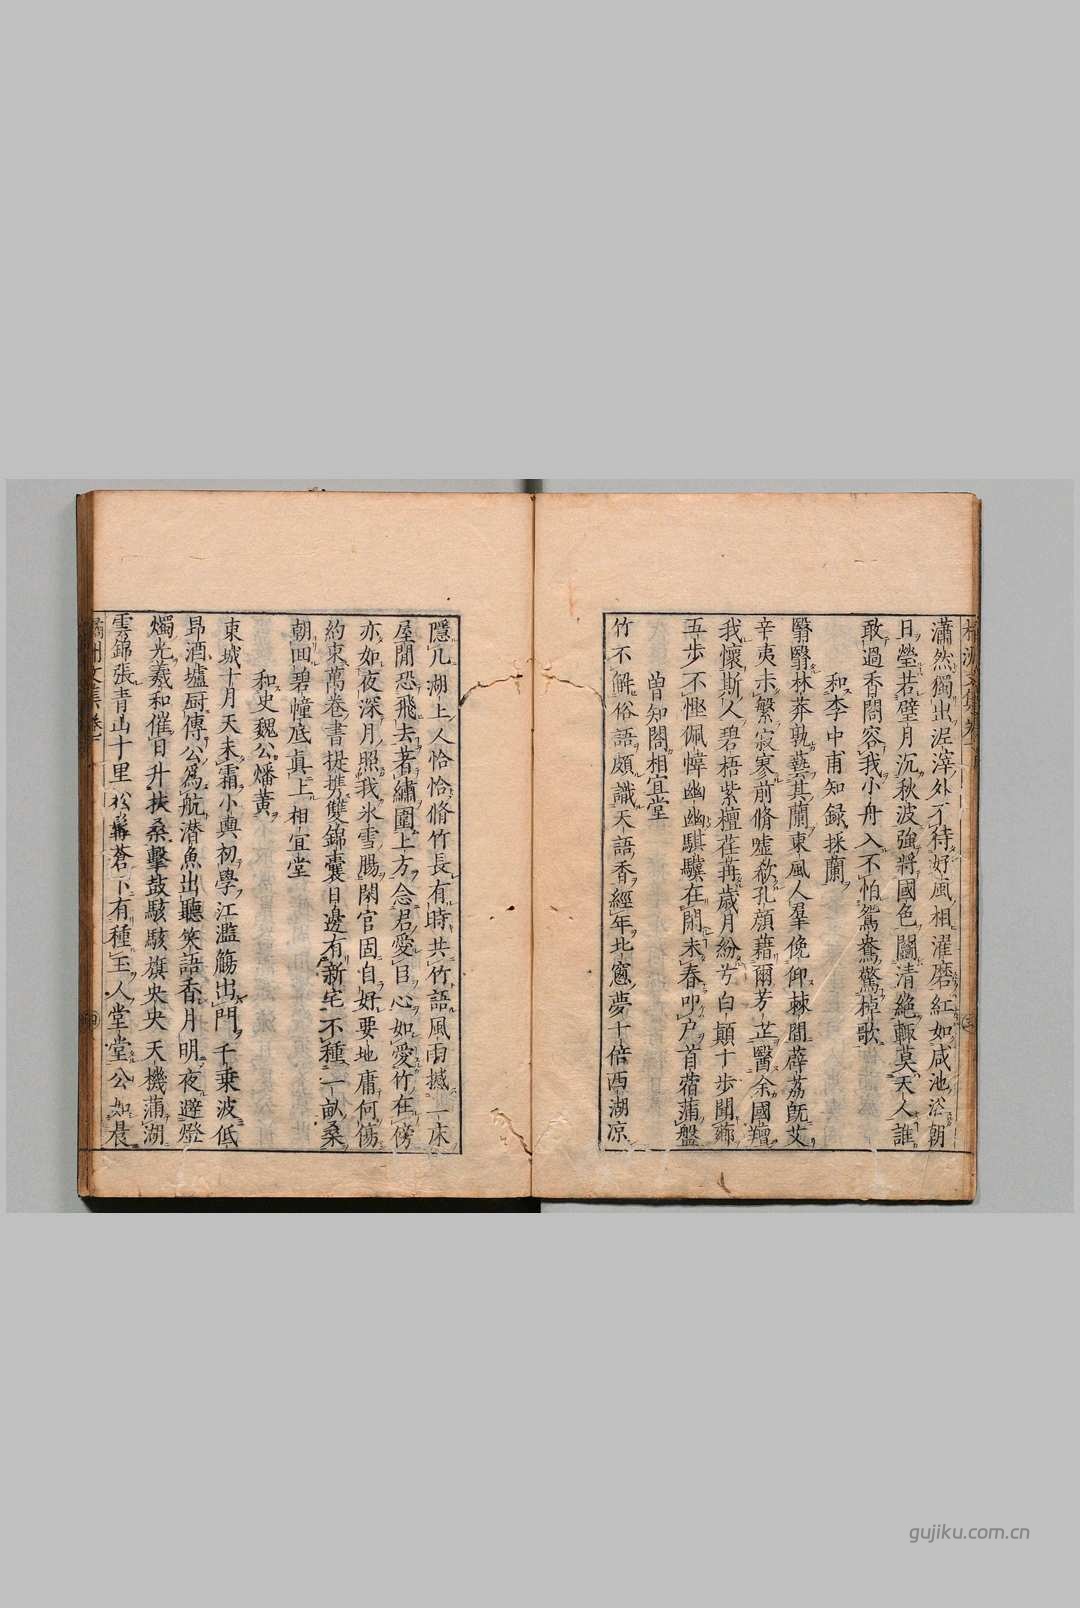 瀟然獨出泥滓外不待好風相濯磨紅如咸池浴朝
日瑩若璧月沉秋波強將國色鬪清絶輙莫天人誰
敢過香閤容我小舟入不怕鴛鴦驚棹歌
和李中甫知録採蘭
翳翳林莽孰藝其蘭東風人羣俛仰棘間薜荔既艾
辛夷未繁寂寥前脩噓欷孔顔藉爾芳芷醫余國羶
我懷斯人碧梧紫檀荏苒歲月紛兮白顛十步聞薌
五步不慳佩幃幽幽騏驥在閑未春叩户首蓿蒲盤
曽知閤相宜堂
竹不解俗語頗識天語香經年北窻夢十倍西湖凉
隱几湖上人恰恰脩竹長有時共竹語風雨撼一床
屋閒恐飛去著繡圍上方念君愛日心如愛竹在傍
亦如夜深月照我氷雪腸閑官固自好要地庸何傷
約束萬卷書提携雙錦囊日邊有新宅不種一畝桑
朝回碧幢底真上相宜堂
和史魏公燔黄
東城十月天未霜小輿初學江濫觴出門千乗波低
昂酒壚厨傳公爲航潜魚出聽笑語香月明夜避燈
燭光羲和催日升扶桑擊鼓駭駭旗央央天機蒲湖
雲錦張青山十里松髯蒼下有種玉人堂堂公如晨
橘洲文集卷一
四